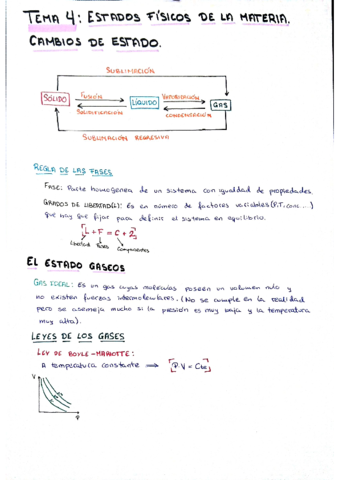 TEMA 4: ESTADOS FÍSICOS DE LA MATERIA.
CAMBIOS DE ESTADO.
SUBLIMACIÓN
SÓLIDO
FUSIÓN
SOLIDIFICACIÓN
LÍQUIDO
VAPORIZACIÓN
CONDENSACIÓN
GAS
SUBLIMACIÓN REGRESIVA
REGLA DE LAS FASES
FASE: Parte homogénea de un sistema con igualdad de propiedades.
GRADOS DE LIBERTAD(L): Es en número de factores variables(P,T,conc...)
que hay que fijar para definir el sistema en equilibrio.
[L + F = C + 2]
Libertad Fases Componentes
EL ESTADO GASEOS
GAS IDEAL: Es un gas cuyas moléculas poseen un volumen nulo y
no existen fuerzas intermoleculares. (No se cumple en la realidad
pero se asemeja mucho si la presión es muy baja y la temperatura
muy alta).
LEYES DE LOS GASES
LEY DE BOYLE-MARIOTTE:
A temperatura constante → [P.V = Cte]
V
P